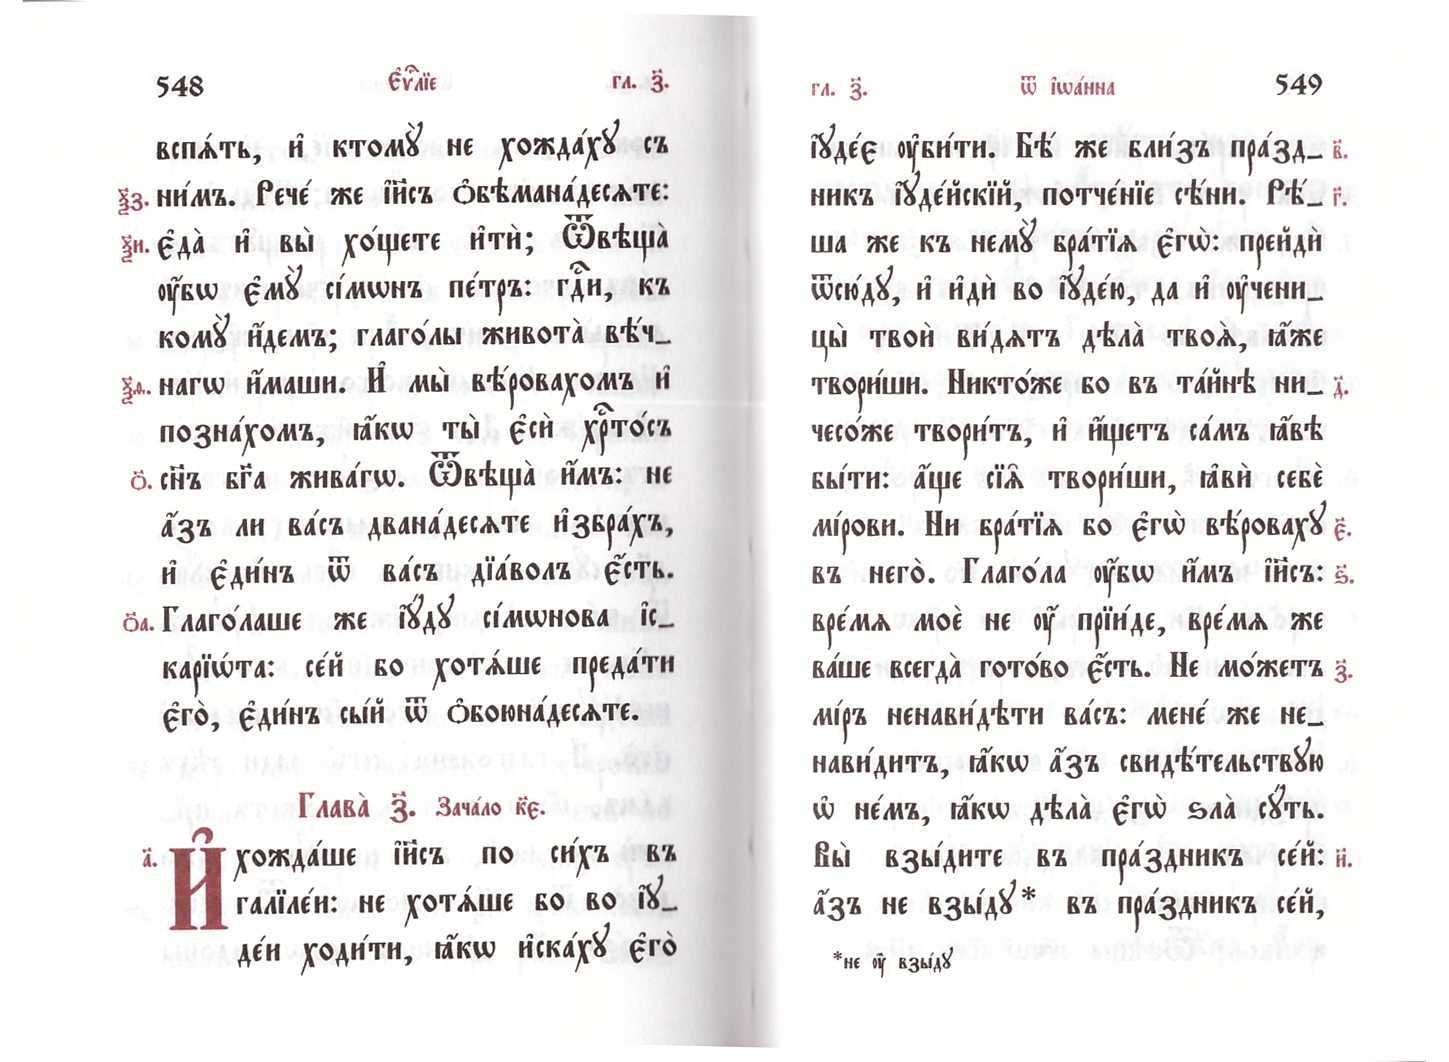 548 Є҆ѵⷢ҇лїе гл. з҃.
вспѧ́ть, и҆ ктомꙋ̀ не хожда́хꙋ съ
ѯ҃з. ни́мъ. Рече́ же і҆и҃съ ѻ҆бѣмана́десѧте:
ѯ҃и. є҆да̀ и҆ вы̀ хо́щете и҆тѝ; Ѿвѣща̀
ᲂу҆̀бѡ є҆мꙋ̀ сі́мѡнъ пе́тръ: гдⷭ҇и, къ
комꙋ̀ и҆́демъ; глаго́лы живота̀ вѣ́ч_
ѯ҃ѳ. нагѡ и҆́маши. И҆ мы̀ вѣ́ровахомъ и҆
позна́хомъ, ꙗ҆́кѡ ты̀ є҆сѝ хрⷭ҇то́съ
ѻ҃. сн҃ъ бг҃а жива́гѡ. Ѿвѣща̀ и҆̀мъ: не
а҆́зъ ли ва́съ двана́десѧте и҆збра́хъ,
и҆ є҆ди́нъ ѿ ва́съ дїа́волъ є҆́сть.
ѻ҃а. Глаго́лаше же і҆ꙋ́дꙋ сі́мѡнова і҆с_
карїѡ́та: се́й бо хотѧ́ше преда́ти
є҆го̀, є҆ди́нъ сы́й ѿ ѻ҆боюна́десѧте.
Глава̀ з҃. Зача́ло к҃е.
а҃. И҆ хожда́ше і҆и҃съ по си́хъ въ
галїле́и: не хотѧ́ше бо во і҆ꙋ_
де́и ходи́ти, ꙗ҆́кѡ и҆ска́хꙋ є҆го̀
гл. з҃. ѿ і҆ѡа́нна 549
і҆ꙋде́є ᲂу҆би́ти. Бѣ́ же бли́зъ пра́зд_ в҃.
никъ і҆ꙋде́йскїй, потче́нїе сѣ́ни. Рѣ́_ г҃.
ша же къ немꙋ̀ бра́тїѧ є҆гѡ̀: прейдѝ
ѿсю́дꙋ, и҆ и҆дѝ во і҆ꙋде́ю, да и҆ ᲂу҆чени_
цы̀ твоѝ ви́дѧтъ дѣла̀ твоѧ̀, ꙗ҆̀же
твори́ши. Никто́же бо въ та́йнѣ ни_ д҃.
чесо́же твори́тъ, и҆ и҆́щетъ са́мъ ꙗ҆́вѣ
бы́ти: а҆́ще сїѧ̑ твори́ши, ꙗ҆вѝ себѐ
мі́рови. Ни бра́тїѧ бо є҆гѡ̀ вѣ́ровахꙋ є҃.
въ него̀. Глаго́ла ᲂу҆̀бѡ и҆̀мъ і҆и҃съ: ѕ҃.
вре́мѧ моѐ не ᲂу҆̀ прїи́де, вре́мѧ же
ва́ше всегда̀ гото́во є҆́сть. Не мо́жетъ з҃.
мі́ръ ненави́дѣти ва́съ: мене́ же не_
нави́дитъ, ꙗ҆́кѡ а҆́зъ свидѣ́тельствꙋю
ѡ҆ не́мъ, ꙗ҆́кѡ дѣла̀ є҆гѡ̀ ѕла̀ сꙋ́ть.
Вы̀ взы́дите въ пра́здникъ се́й: и҃.
а҆́зъ не взы́дꙋ* въ пра́здникъ се́й,
*не ᲂу҆̀ взы́дꙋ